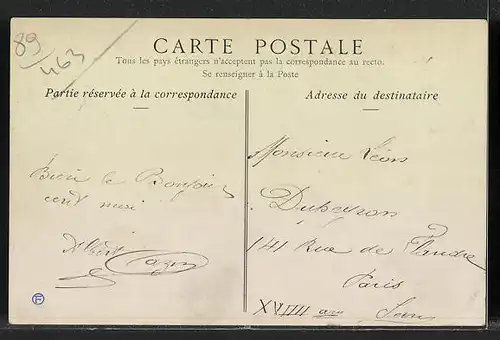 89
463
CARTE POSTALE
Tous les pays étrangers n'acceptent pas la correspondance au recto.
Se renseigner à la Poste
Partie réservée à la correspondance
Adresse du destinataire
Bien le Bonjour
Albert
Cazon
Monsieur Léon
Dupeyron
141 Rue de Flandre
Paris